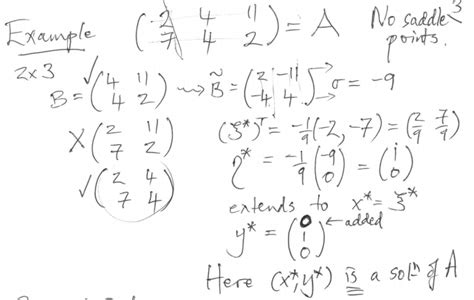 Example (-2 4 11 / 7 4 2) = A No saddle points.
2x3
✓ B = (4 11 / 4 2) ⇝ B̃ = (2 -11 / -4 4) → σ = -9
X (2 11 / 7 2) (ξ*)ᵀ = -1/9 (-2, -7) = (2/9 7/9)
✓ (2 4 / 7 4) η* = -1/9 (-9 / 0) = (1 / 0)
extends to x* = ξ*
y* = (0 / 1 / 0) ← added
Here (x*, y*) is a solⁿ of A